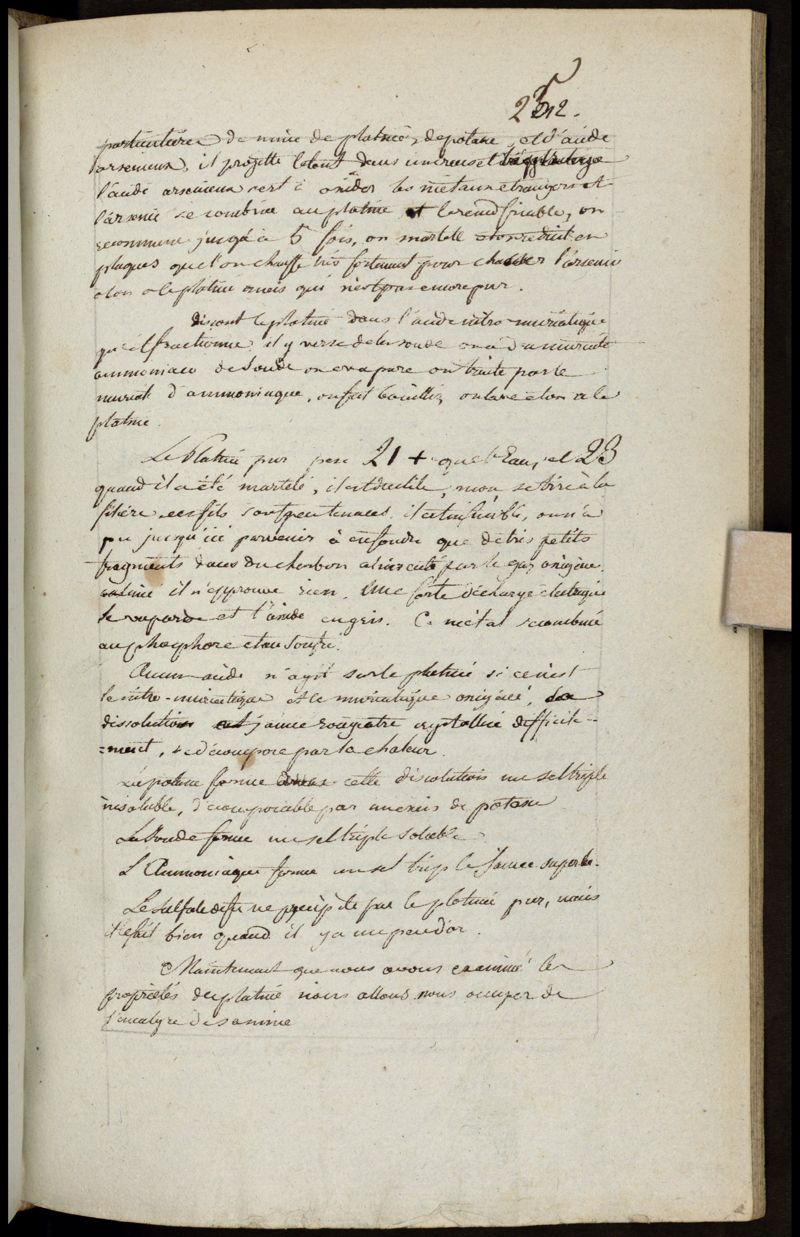 252.
particulière de mine de platine, de potasse et d'acide
arsenieux, il projette le tout dans un creuset
l'acide arsenieux sert à oxider les metaux etrangers et
l'arsenic se combine au platine et le rend fusible, on
recommence jusqu'a 5 fois, on martele en
plaques que l'on chauffe très fortement pour chasser l'arsenic
alon a le platine mais qui n'est pas encore pur.
dissout le platine dans l'acide nitro-muriatique
qu'il fractionne il y verse de la soude on a du muriate
ammoniaco de soude on evapore on traite par le
muriate d'ammoniaque, on fait bouillir, on lave et on a le
platine.
Le Platine pur pese 21 + que l'Eau, et 23
quand il a été martelé, il est ductile, mou se tire a la
filière, ces fils sont peu tenaces, il est infusible, on n'a
pu jusqu'ici parvenir à en fondre que de très petits
fragments dans du charbon alimenté par le gaz oxigène.
calciné il n'epprouve rien. Une forte décharge électrique
le vaporise et l'oxide en gris. Ce métal se combine
au phosphore et au soufre.
Aucun acide n'agit sur le platine si ce n'est
le nitro-muriatique et le muriatique oxigéné, La
dissolution est jaune rougeatre crystallise difficile-
=ment, se décompose par la chaleur.
La potasse forme dans cette dissolution un sel triple
insoluble, décomposable par un excès de potasse
La Soude forme un sel triple soluble
L'Ammoniaque forme un sel triple Jaune superbe.
Le sulfate de fer ne precipite pas le platine pur, mais
il le fait bien quand il y a un peu d'or.
Maintenant que nous avons examiné les
propriétés du platine nous allons nous occuper de
l'analyse de sa mine